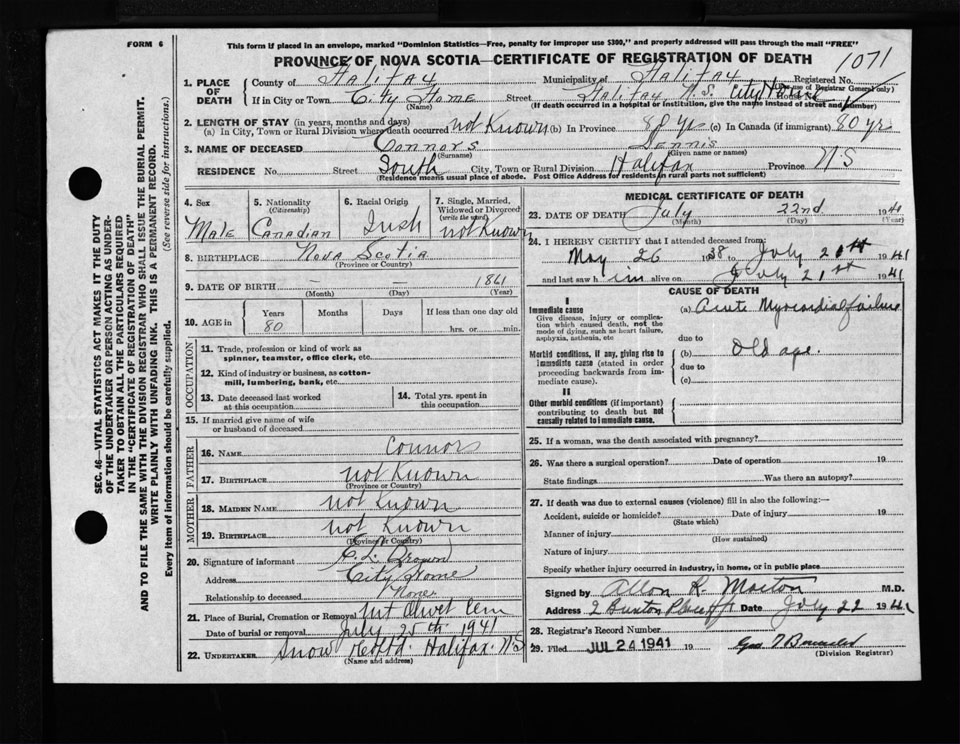 FORM 6
This form if placed in an envelope, marked "Dominion Statistics—Free, penalty for improper use $300," and properly addressed will pass through the mail "FREE"
PROVINCE OF NOVA SCOTIA—CERTIFICATE OF REGISTRATION OF DEATH
1071
1. PLACE OF DEATH
County of Halifax Municipality of Halifax Registered No.
(For use of Registrar General only)
If in City or Town City Home Street Halifax N.S. City Home
(Name) (If death occurred in a hospital or institution, give the name instead of street and number)
2. LENGTH OF STAY (in years, months and days)
(a) In City, Town or Rural Division where death occurred not Known (b) In Province 80 yrs (c) In Canada (if immigrant) 80 yrs
3. NAME OF DECEASED Connors Dennis
(Surname) (Given name or names)
RESIDENCE No. Street South City, Town or Rural Division Halifax Province N S
(Residence means usual place of abode. Post Office Address for residents in rural parts not sufficient)
4. Sex
Male
5. Nationality
(Citizenship)
Canadian
6. Racial Origin
Irish
7. Single, Married, Widowed or Divorced
(write the word)
not Known
8. BIRTHPLACE Nova Scotia
(Province or Country)
9. DATE OF BIRTH — — 1861
(Month) (Day) (Year)
10. AGE in
Years Months Days If less than one day old
80 hrs. or min.
OCCUPATION
11. Trade, profession or kind of work as spinner, teamster, office clerk, etc.
12. Kind of industry or business, as cotton-mill, lumbering, bank, etc.
13. Date deceased last worked at this occupation
14. Total yrs. spent in this occupation
15. If married give name of wife or husband of deceased
FATHER
16. NAME Connors
17. BIRTHPLACE not Known
(Province or Country)
MOTHER
18. MAIDEN NAME not Known
19. BIRTHPLACE not Known
(Province or Country)
20. Signature of informant
Address City Home
Relationship to deceased None
21. Place of Burial, Cremation or Removal Mt Olivet Cem
Date of burial or removal July 25th 1941
22. UNDERTAKER Snow Halifax N S
(Name and address)
MEDICAL CERTIFICATE OF DEATH
23. DATE OF DEATH July 22nd 1941
(Month) (Day) (Year)
24. I HEREBY CERTIFY that I attended deceased from:
May 26 1938 to July 21st 1941
and last saw him alive on July 21st 1941
CAUSE OF DEATH
I
Immediate cause
Give disease, injury or complication which caused death, not the mode of dying, such as heart failure, asphyxia, asthenia, etc
(a) Acute Myocardial failure
due to
Morbid conditions, if any, giving rise to immediate cause (stated in order proceeding backwards from immediate cause).
(b) Old age.
due to
(c)
II
Other morbid conditions (if important) contributing to death but not causally related to immediate cause.
25. If a woman, was the death associated with pregnancy?
26. Was there a surgical operation? Date of operation 19
State findings Was there an autopsy?
27. If death was due to external causes (violence) fill in also the following:—
Accident, suicide or homicide? Date of injury 19
(State which)
Manner of injury
(How sustained)
Nature of injury
Specify whether injury occurred in industry, in home, or in public place
Signed by Allan R. Morton M.D.
Address Date July 22 1941
28. Registrar's Record Number
29. Filed JUL 24 1941 19
(Division Registrar)
SEC. 46—VITAL STATISTICS ACT MAKES IT THE DUTY
OF THE UNDERTAKER OR PERSON ACTING AS UNDER-
TAKER TO OBTAIN ALL THE PARTICULARS REQUIRED
IN THE "CERTIFICATE OF REGISTRATION OF DEATH"
AND TO FILE THE SAME WITH THE DIVISION REGISTRAR WHO SHALL ISSUE THE BURIAL PERMIT.
WRITE PLAINLY WITH UNFADING INK. THIS IS A PERMANENT RECORD.
Every item of information should be carefully supplied. (See reverse side for instructions.)